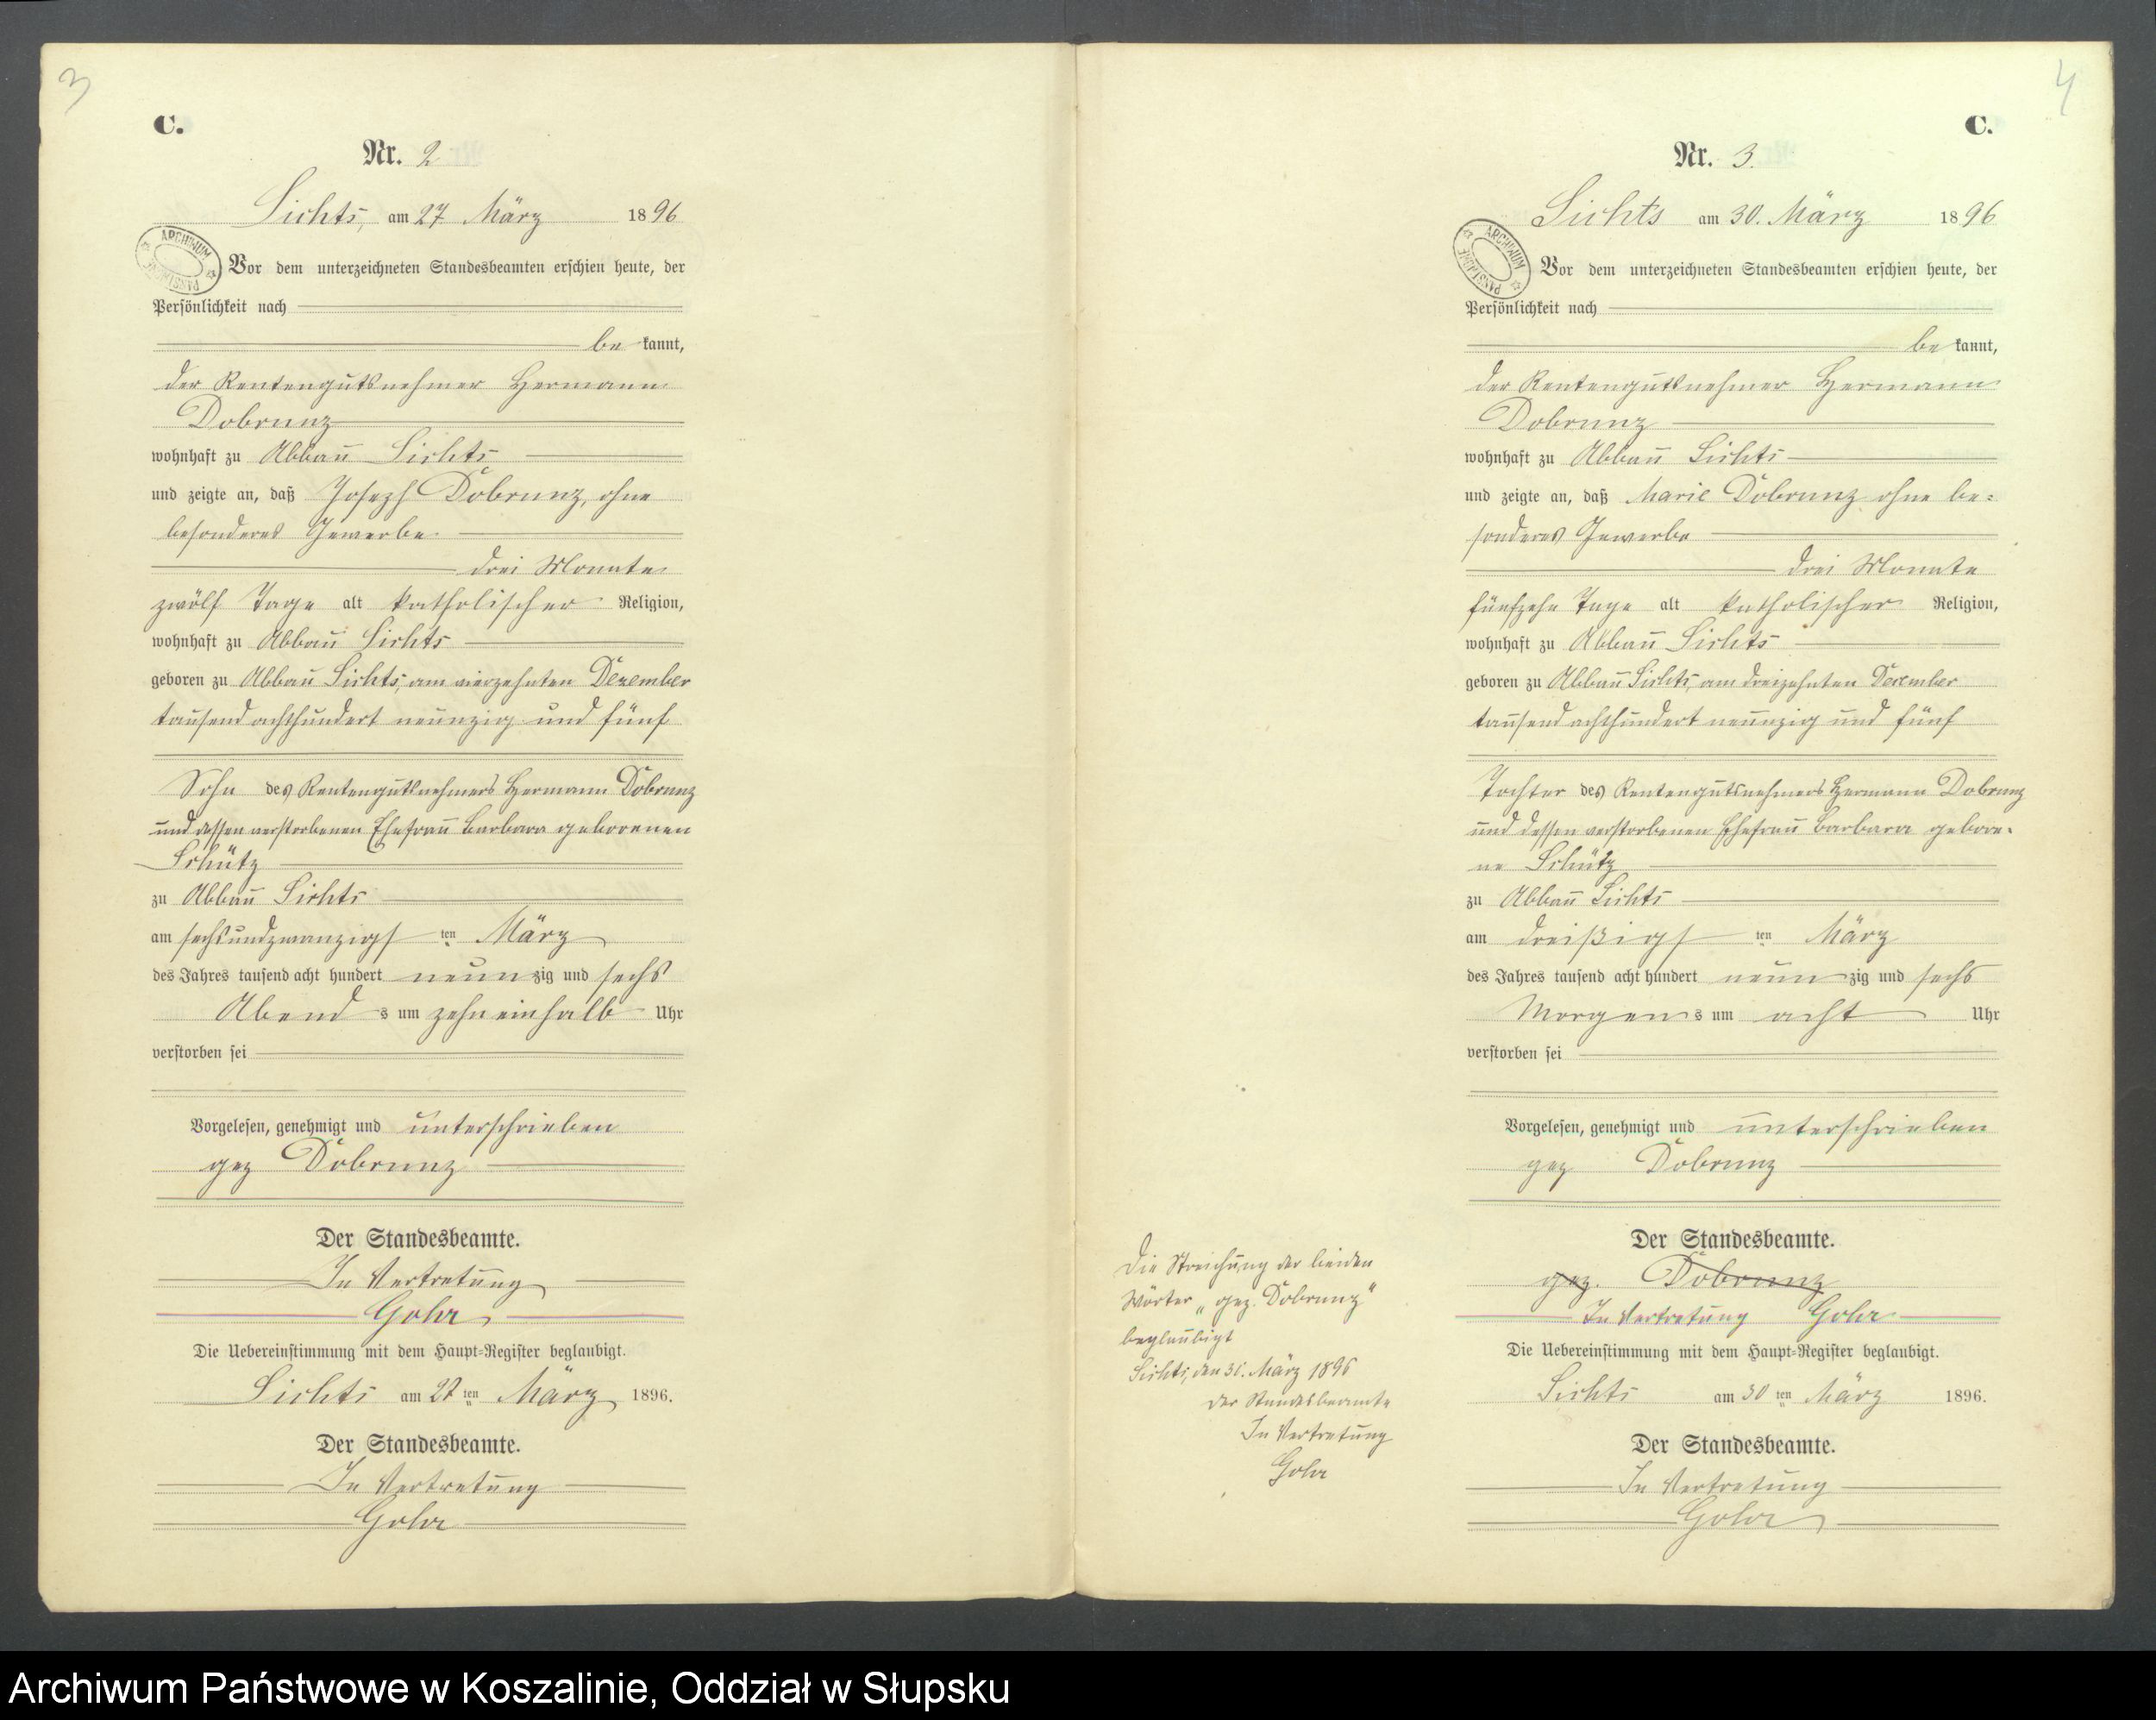 3
C.
Nr. 2
Sichts, am 27 März 1896
ARCHIWUM
PAŃSTWOWE
Vor dem unterzeichneten Standesbeamten erschien heute, der
Persönlichkeit nach
be kannt,
der Rentengutsnehmer Hermann
Dobrunz
wohnhaft zu Abbau Sichts
und zeigte an, daß Joseph Dobrunz, ohne
besonderes Gewerbe
drei Monate
zwölf Tage alt katholischer Religion,
wohnhaft zu Abbau Sichts
geboren zu Abbau Sichts, am vierzehnten Dezember
tausend achthundert neunzig und fünf
Sohn des Rentengutsnehmers Hermann Dobrunz
und dessen verstorbenen Ehefrau Barbara geborenen
Schütz
zu Abbau Sichts
am sechsundzwanzigs ten März
des Jahres tausend acht hundert neun zig und sechs
Abend s um zehneinhalb Uhr
verstorben sei
Vorgelesen, genehmigt und unterschrieben
gez Dobrunz
Der Standesbeamte.
In Vertretung
Gohr
Die Uebereinstimmung mit dem Haupt-Register beglaubigt.
Sichts am 27 ten März 1896.
Der Standesbeamte.
In Vertretung
Gohr
4
C.
Nr. 3.
Sichts am 30. März 1896
ARCHIWUM
PAŃSTWOWE
Vor dem unterzeichneten Standesbeamten erschien heute, der
Persönlichkeit nach
be kannt,
der Rentengutsnehmer Hermann
Dobrunz
wohnhaft zu Abbau Sichts
und zeigte an, daß Marie Dobrunz ohne be-
sonderes Gewerbe
drei Monate
fünfzehn Tage alt katholischer Religion,
wohnhaft zu Abbau Sichts
geboren zu Abbau Sichts, am dreizehnten Dezember
tausend achthundert neunzig und fünf
Tochter des Rentengutsnehmers Hermann Dobrunz
und dessen verstorbenen Ehefrau Barbara gebore-
ne Schütz
zu Abbau Sichts
am dreißigs ten März
des Jahres tausend acht hundert neun zig und sechs
Morgen s um acht Uhr
verstorben sei
Vorgelesen, genehmigt und unterschrieben
gez Dobrunz
Der Standesbeamte.
gez. Dobrunz
In Vertretung Gohr
Die Uebereinstimmung mit dem Haupt-Register beglaubigt.
Sichts am 30 ten März 1896.
Der Standesbeamte.
In Vertretung
Gohr
Die Streichung der beiden
Wörter „gez. Dobrunz"
beglaubigt
Sichts, den 31. März 1896
Der Standesbeamte
In Vertretung
Gohr
Archiwum Państwowe w Koszalinie, Oddział w Słupsku